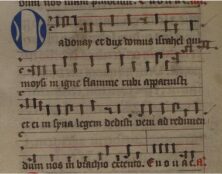 dum nos viam prudentie. E u o u a e.
O adonay et dux domus israhel qui
moysi in igne flamme rubi apparuisti
et ei in syna legem dedisti veni ad redimen
dum nos in brachio extento. E u o u a e.